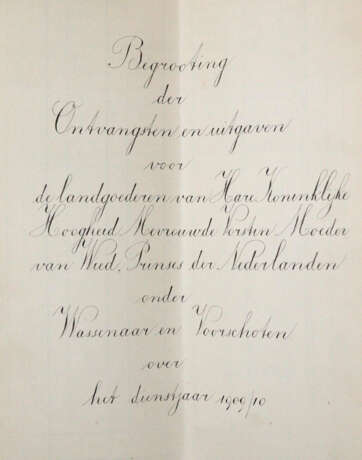 Begrooting
der
Ontvangsten en uitgaven
voor
de landgoederen van Hare Koninklijke
Hoogheid Mevrouwde Vorstin Moeder
van Wied, Prinses der Nederlanden
onder
Wassenaar en Voorschoten
over
het dienstjaar 1909/10